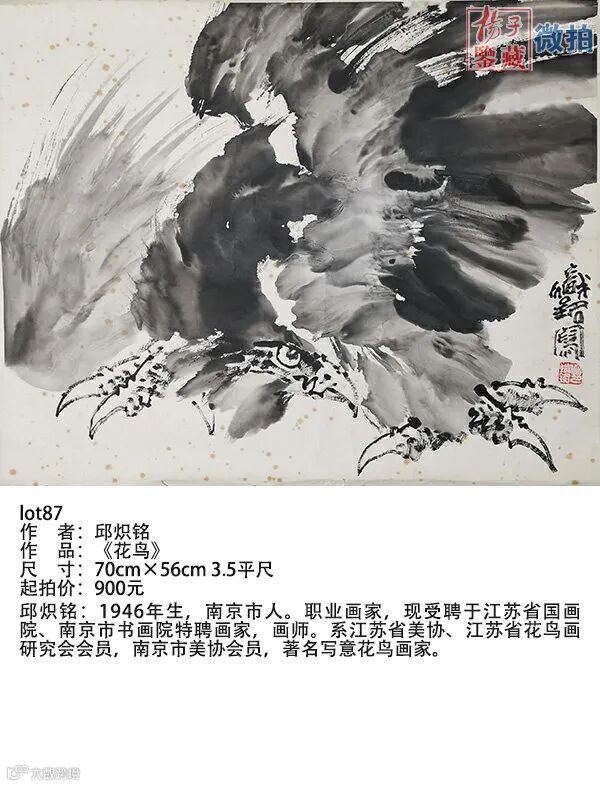 杨子
鉴藏
微拍
lot87
作 者：邱炽铭
作 品：《花鸟》
尺 寸：70cm×56cm 3.5平尺
起拍价：900元
邱炽铭：1946年生，南京市人。职业画家，现受聘于江苏省国画
院、南京市书画院特聘画家，画师。系江苏省美协、江苏省花鸟画
研究会会员，南京市美协会员，著名写意花鸟画家。
大数跨境